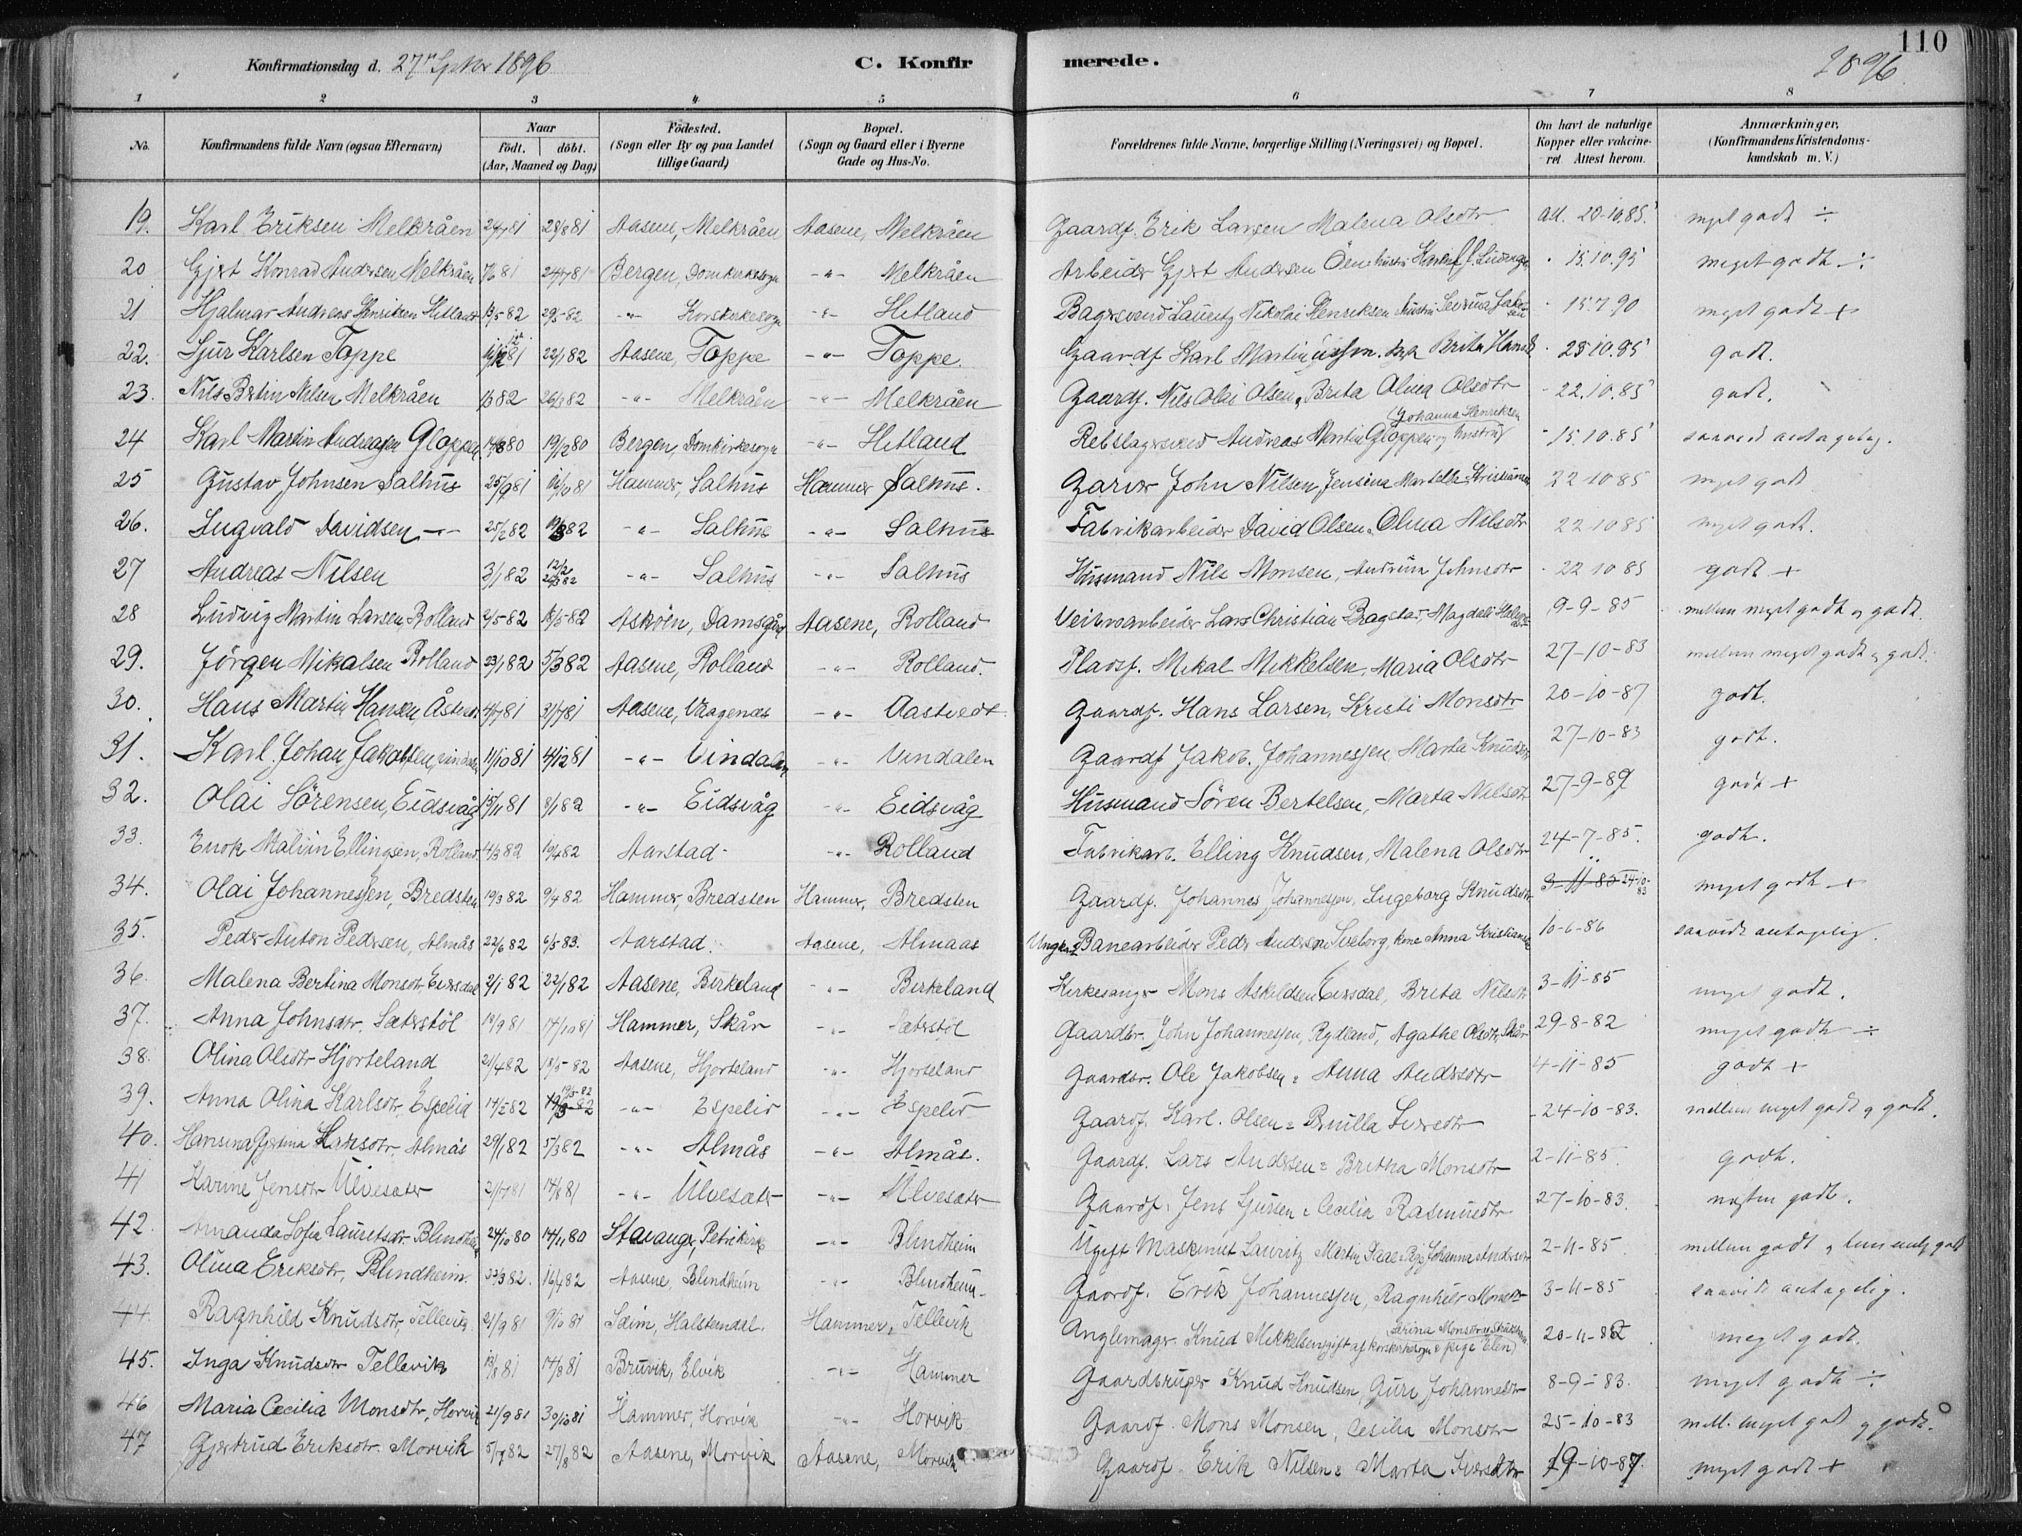 110
Konfirmationsdag d. 27 1896 C. Konfirmerede. 1896
1 2 3 4 5 6 7 8
No. Konfirmandens fulde Navn (ogsaa Efternavn) Naar født. døbt. (Aar, Maaned og Dag) Fødested. (Sogn eller By og paa Landet tillige Gaard) Bopæl. (Sogn og Gaard eller i Byerne Gade og Hus-No. Forældrenes fulde Navne, borgerlige Stilling (Næringsvei) og Bopæl. Om havt de naturlige Kopper eller vakcineret. Attest herom. Anmærkninger, (Konfirmandens Kristendomskundskab m. V.)
19. Karl Eriksen Melkråen 28/8 81 Aasene, Melkråen Aasene, Melkråen Gaardf. Erik Larsen Malena Olsdtr att. 20-10.85 meget godt ÷
20 Gjert Konrad Andersen Melkråen 24/7 81 Bergen, Domkirkesogn -"- Melkråen Arbeider Gjert Andersen 15.10.95 meget godt ÷
21 Hjalmar Andreas Henriksen Hitland 13/5 82 29/5 82 -"- Korskirkesogn -"- Hitland Bagersvend Lauritz Nikolai Henriksen 15.7.90 meget godt +
22. Sjur Karlsen Toppe 22/1 82 Aasene, Toppe -"- Toppe. Gaardf Karl Martin Brita Hansd 23 10.85 godt.
23. Nils Bertin Nilsen Melkråen 1/3 82 26/3 82 -"- Melkråen -"- Melkråen Gaardf. Nils Olai Olsen, Brita Olina Olsdtr - 22.10.85 godt.
24 Karl Martin Andreasen Gloppen 19/2 80 Bergen, Domkirkesogn -"- Hitland Rebslagersvend Andreas Martin Gloppen og hustru Johanna Henriksen - 15.10.85 saavid antagelig.
25 Gustav Johnsen Salhus 25/9 81 16/10 81 Hammer, Salhus Hammer Salhus. Garver John Nilsen, Jensina 22-10 85 meget godt
26. Ingvald Davidsen -"- 25/2 82 19/3 82 -"- Salhus -"- Salhus Fabrikarbeider David Olsen, Olina Nilsdtr 22-10 85 meget godt.
27 Andreas Nilsen 3/1 82 12/2 82 -"- Salhus -"- Salhus Husmand Nils Monsen, Andrina Johnsdtr 22 10 85 godt +
28 Ludvig Martin Larsen, Rolland 2/5 82 18/5 82 Askøen, Damsgård Aasene, Rolland Veivearbeider Lars Christian Bragstad, Magdali 9-9-85 mellem meget godt og godt.
29. Jørgen Mikalsen Rolland 23/1 82 5/3 82 Aasene, Rolland -"- Rolland. Pladsf. Mikal Mikkelsen, Maria Olsdtr 27-10-83 mellem meget godt og godt.
30. Hans Martin Hansen Åstvedt 4/7 81 31/7 81 Aasene, Vaagenes -"- Aastvedt Gaardf. Hans Larsen, Kristi Monsdtr 20-10-87 godt.
31. Karl Johan Jakobsen, Vindalen 11/10 81 4/12 81 -"- Vindalen -"- Vindalen Gaardf Jakob Johannessen Marta Knudsdtr 27-10-83 godt.
32. Olai Sørensen, Eidsvåg 15/11 81 8/1 82 -"- Eidsvåg -"- Eidsvåg Husmand Søren Bertelsen, Marta Nilsdtr 27-9-89 godt +
33. Enok Malvin Ellingsen, Rolland 4/3 82 10/4 82 Aarstad -"- Rolland Fabrikarb. Elling Knudsen, Malena Olsdtr 24-7-85. godt.
34. Olai Johannessen, Bredsten 19/3 82 9/4 82 Hammer, Bredsten Hammer, Bredsten Gaardf. Johannes Johannessen, Ingeborg Knudsdtr 3-11-85 24-10-83 meget godt +
35. Peder Anton Pedersen, Almås 22/6 82 6/5 83. Aarstad. Aasene, Almaas Ungkarl Banearbeider Peder Andersen kone Anna Kristiansd 10-6-86 saavidt antagelig.
36. Malena Bertina Monsdtr. Eversdal 2/1 82 22/1 82 Aasene, Birkeland -"- Birkeland Kirkesanger Mons Askildsen Eversdal, Brita Nilsdtr 3-11-85 meget godt.
37. Anna Johnsdtr. Sæterstøl 18/9 81 17/10 81 Hammer, Skår -"- Sæterstøl Gaardbr. John Johannessen, Rydland, Agathe Olsdtr, Skår 29-8-82 meget godt ÷
38. Olina Olsdtr Hjorteland 21/4 82 18/5 82 Aasene, Hjorteland -"- Hjorteland Gaardbr. Ole Jakobsen = Anna Andersdtr 4-11-85 godt +
39. Anna Olina Karlsdtr. Espelid 14/2 82 19/3-82 19/3-82 -"- Espelid -"- Espelid Gaardf. Karl Olsen = Brynilla Iversdtr -24-10-83. mellem meget godt og godt.
40. Hansina Gjertina Hansdtr. Almås 29/1 82 5/3 82 -"- Almås -"- Almås. Gaardf. Lars Andersen = Britha Monsdtr 2-11-85. godt.
41 Karine Jensdtr Ulvesæter 2/7 81 17/8 81 -"- Ulvesæter -"- Ulvesæter Gaardf. Jens Sjursen = Cecilia Rasmusdtr 27-10-83. næsten godt.
42. Amanda Sofie Lauritsdtr. Blindheim 24/10 80 14/11 80 Stavanger, Petrikirke -"- Blindheim Ugift Maskinist Lauritz Martin Johanna Andersdtr 2-11-85. mellem godt og
43. Olina Eriksdtr, Blindheim. 23/3 82. 16/4 82 Aasene, Blindheim -"- Blindheim Gaardf. Erik Johannessen, Ragnhild Monsdtr 3-11-85 saavidt antagelig.
44 Ragnhild Knudsdtr, Tellevik 21/9 81 9/10 81 Seim, Halstendal. Hammer, Tellevik Anglemager Knud Mikkelsen gift af Korskirkesogn & pige Elen 20-11-82 meget godt.
45. Inga Knudsdtr Tellevik 13/8 81 14/8 81 Bruvik, Elvik -"- Hammer Gaardbruger Knud Knudsen, Guri Johannesdtr 8-9-83. meget godt ÷
46 Maria Cecilia Monsdtr, Horvik 21/9 81 30/10 81 Hammer, Horvik -"- Horvik Gaardf. Mons Monsen, Cecilia Monsdtr 25-10-83 mell. meget godt og godt.
47 Gjertrud Eriksdtr. Morvik 5/7 82 27/8 82 Aasene, Morvik Aasene, Morvik Gaardf. Erik Nilsen = Marta Iversdtr 19-10-87 meget godt +